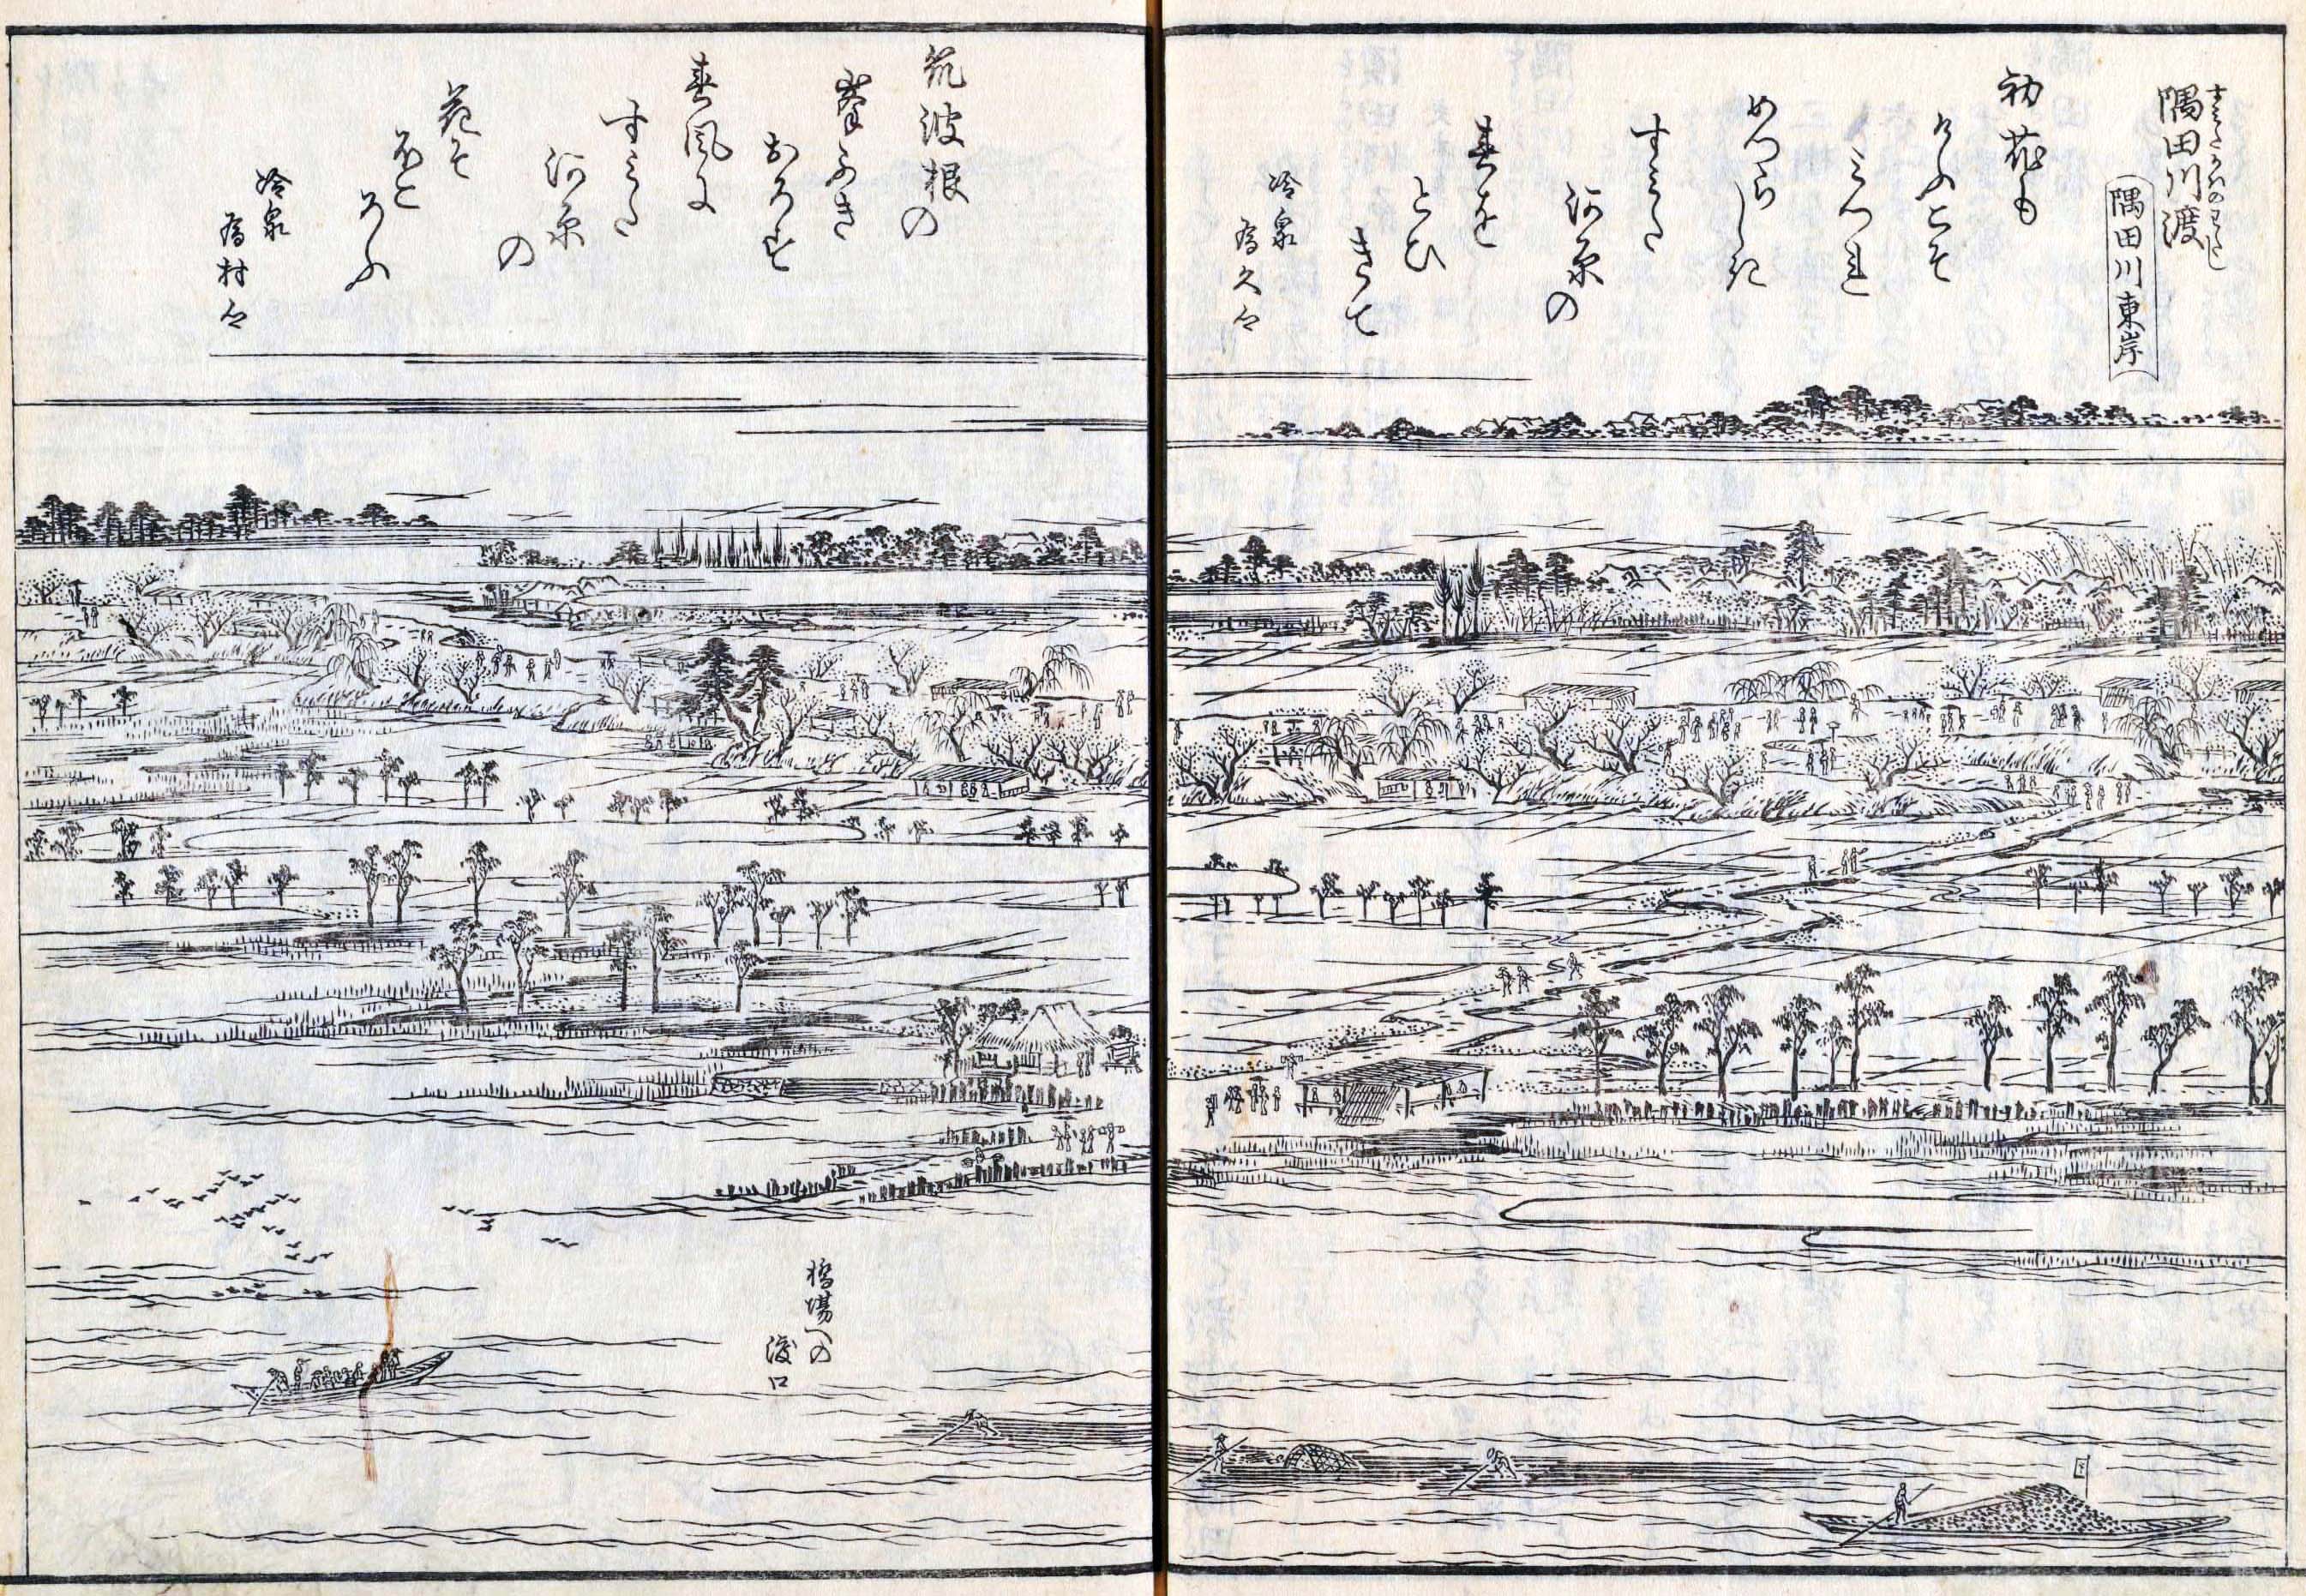 すみたかはのわたし
隅田川渡
隅田川東岸
初花も
けふこそ
みつれ
めつらしき
すみた
河原の
春を
とひ
きて
冷泉
為久卿
筑波根の
峯ふき
おろす
春風に
すみた
河原の
花そ
ほこ
ろふ
冷泉
為村卿
橋場への
渡口